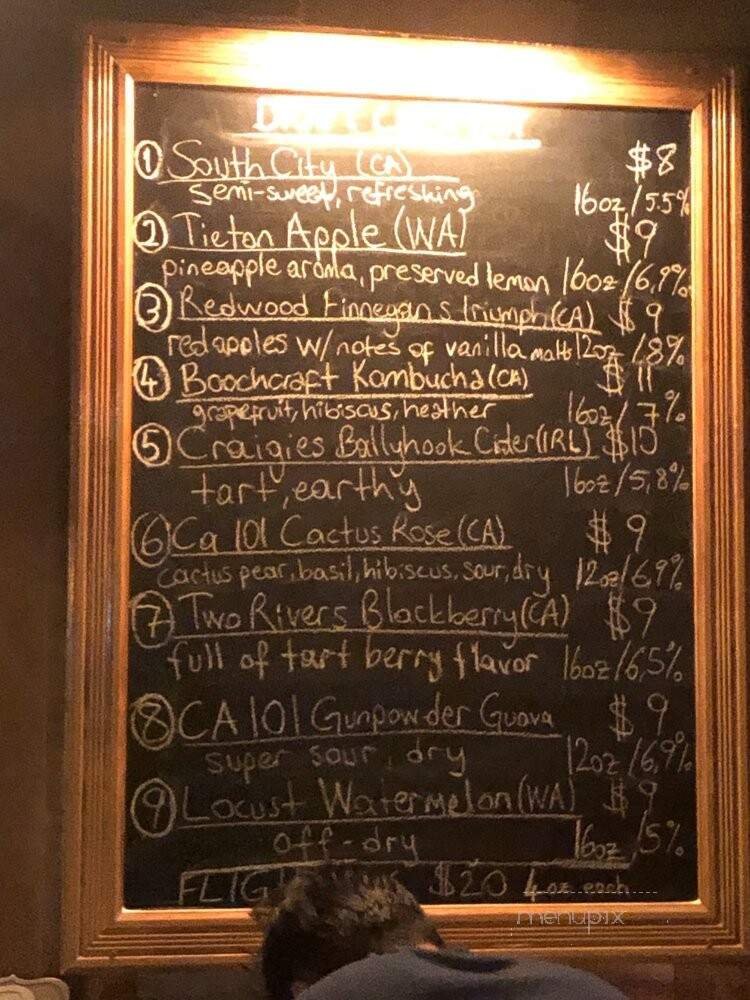 ① South City (CA) $8
semi-sweet, refreshing 16oz/5.5%
② Tieton Apple (WA) $9
pineapple aroma, preserved lemon 16oz/6.9%
③ Redwood Finnegans Triumph (CA) $9
red apples w/notes of vanilla malt 12oz/8%
④ Boochcraft Kombucha (CA) $11
grapefruit, hibiscus, heather 16oz/7%
⑤ Craigies Ballyhook Cider (IRL) $10
tart, earthy 16oz/5,8%
⑥ Ca 101 Cactus Rose (CA) $9
cactus pear, basil, hibiscus, sour, dry 12oz/69%
⑦ Two Rivers Blackberry (CA) $9
full of tart berry flavor 16oz/6,5%
⑧ CA 101 Gunpowder Guava $9
super sour, dry 12oz/6,9%
⑨ Locust Watermelon (WA) $9
off-dry 16oz/5%
$20 4oz each
menupix